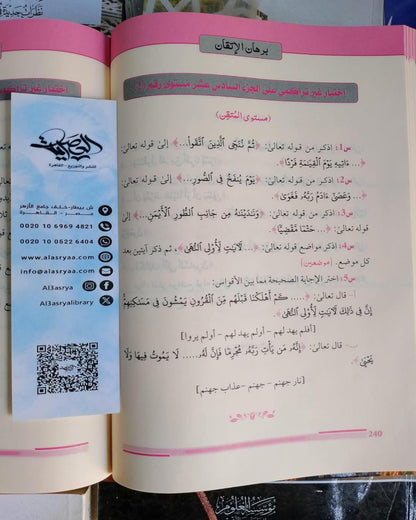 نظرات جديدة
برهان الإتقان
اختبار غير تراكمي على الجزء السادس عشر مستوى رقم
(مستوى المُتقِن)
س١: اذكر من قوله تعالى: ﴿ثُمَّ نُنَجِّي الَّذِينَ اتَّقَوا... ﴾ إلى قوله تعالى:
﴿... ءَاتِيهِ يَوْمَ الْقِيَٰمَةِ فَرْدًا﴾.
س٢: اذكر من قوله تعالى: ﴿يَوْمَ يُنفَخُ فِي الصُّورِ... ﴾ إلى قوله تعالى:
﴿... وَعَصَىٰ ءَادَمُ رَبَّهُ فَغَوَىٰ﴾.
س٣: اذكر من قوله تعالى: ﴿وَنَٰدَيْنَٰهُ مِن جَانِبِ الطُّورِ الْأَيْمَنِ... ﴾ إلى
قوله تعالى: ﴿... حَتْمًا مَّقْضِيًّا﴾.
س٤: اذكر مواضع قوله تعالى: ﴿... لَآيَٰتٍ لِّأُولِي النُّهَىٰ﴾، ثم ذكر آيتين بعد
كل موضع. [موضعين]
س٥: اختر الإجابة الصحيحة مما بين الأقواس:
أ- قال تعالى: ﴿... كَمْ أَهْلَكْنَا قَبْلَهُم مِّنَ الْقُرُونِ يَمْشُونَ فِي مَسَٰكِنِهِمْ
إِنَّ فِي ذَٰلِكَ لَآيَٰتٍ لِّأُولِي النُّهَىٰ﴾.
[أفلم يهد لهم - أولم يهد لهم - أولم يروا]
ب- قال تعالى: ﴿إِنَّهُ مَن يَأْتِ رَبَّهُ مُجْرِمًا فَإِنَّ لَهُ... لَا يَمُوتُ فِيهَا وَلَا
يَحْيَىٰ﴾.
[نار جهنم - جهنم - عذاب جهنم]
240
العصرية
للنشر والتوزيع - القاهرة
ش بيطار- خلف جامع الأزهر
مصر - القاهرة
0020 10 6969 4821
0020 10 0522 6404
www.alasryaa.com
info@alasryaa.com
Al3asrya
Al3asryalibrary
مؤسسة العلوم